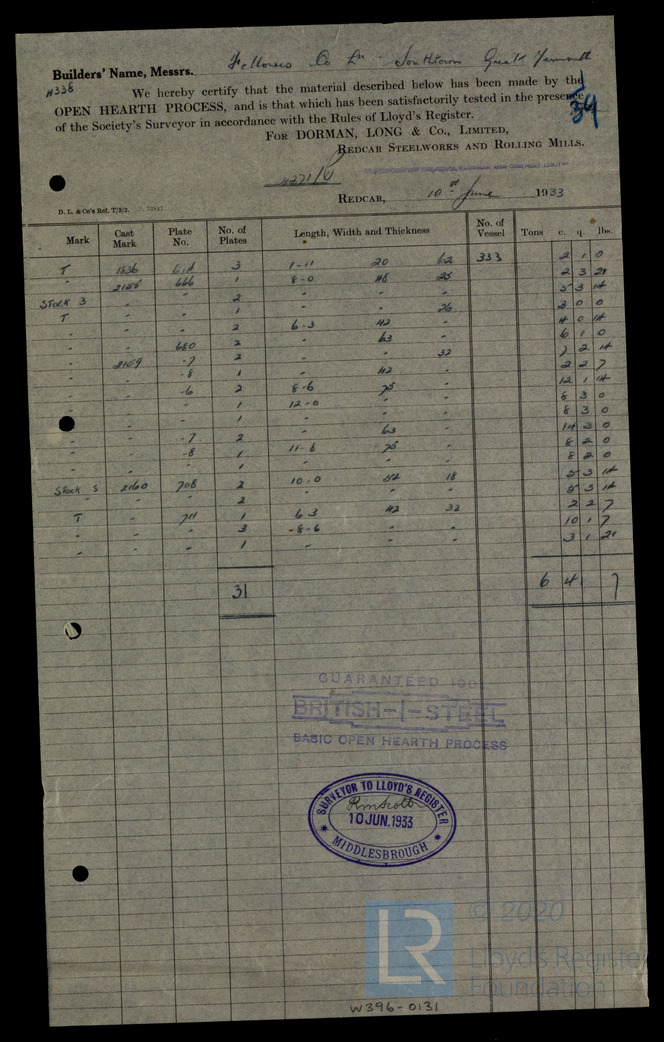 Builders' Name, Messrs. Fellows Co Ltd - Southtown Great Yarmouth
#338
We hereby certify that the material described below has been made by the
OPEN HEARTH PROCESS, and is that which has been satisfactorily tested in the presence
of the Society's Surveyor in accordance with the Rules of Lloyd's Register.
34
FOR DORMAN, LONG & Co., LIMITED,
REDCAR STEELWORKS AND ROLLING MILLS.
REDCAR, 10th June 1933
D. L. & Co's Ref. T/2/2.
Mark Cast Mark Plate No. No. of Plates Length, Width and Thickness No. of Vessel Tons c. q. lbs.
T 1836 3 1-11 20 62 333 2 1 0
" 666 1 8-0 48 25 2 3 21
Stock 3 - - 2 - - - 5 3 14
T - - 1 - - 26 3 0 0
- - - 2 6-3 42 - 4 0 14
- - 680 2 - 63 - 6 1 0
- 2159 -7 2 - - 32 2 14
- - -8 1 - 42 - 2 2 7
- - -6 2 8-6 75 - 12 1 14
- - - 1 12-0 - - 8 3 0
- - - 1 - - - 8 3 0
- - -7 2 - 63 - 14 3 0
- - -8 1 11-8 75 - 8 2 0
- - - 1 - - - 8 2 0
Stock S 2160 708 2 10-0 54 18 5 3 14
- - - 2 - - - 5 3 14
T - 711 1 6-3 42 32 2 2 7
- - - 3 -8-6 - - 10 1 7
- - - 1 - - - 3 1 21
31 6 4 1 7
GUARANTEED 100
BRITISH-I-STEEL
BASIC OPEN HEARTH PROCESS
SURVEYOR TO LLOYD'S REGISTER
RmScott
10 JUN. 1933
MIDDLESBROUGH
LR
© 2020
Lloyd's Register
Foundation
W396-0131